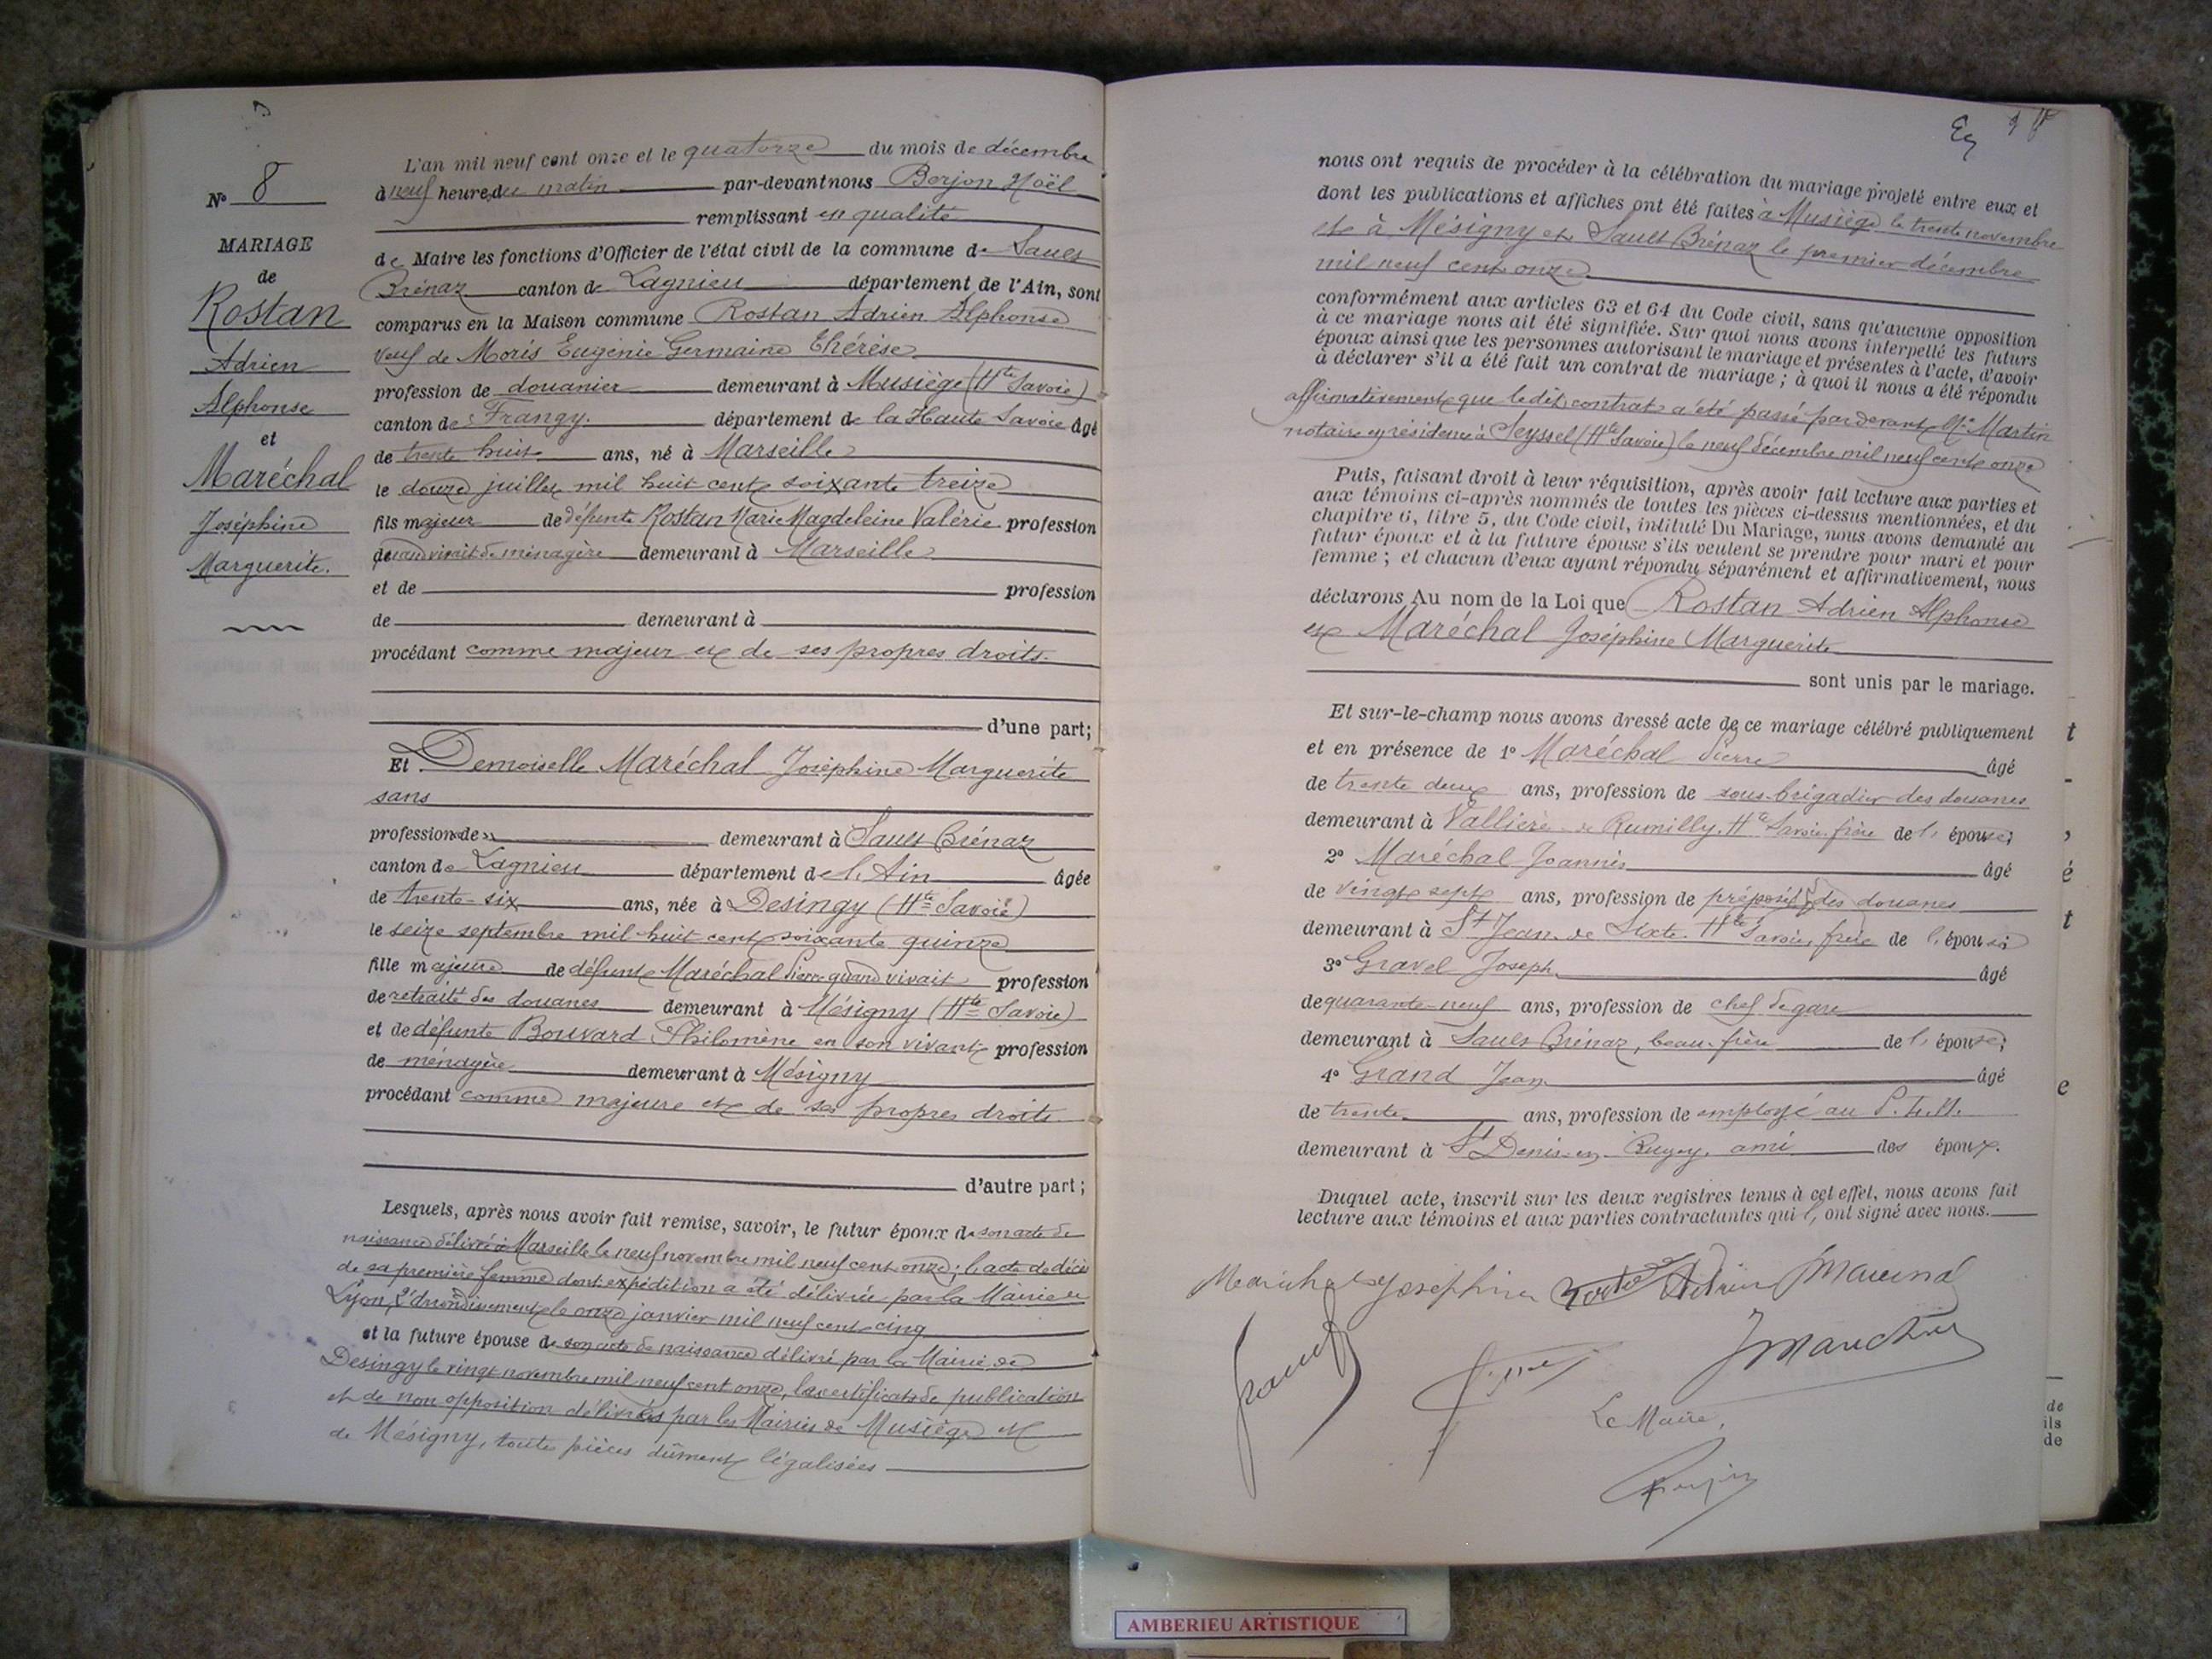 N° 8
MARIAGE
de
Rostan
Adrien
Alphonse
et
Maréchal
Joséphine
Marguerite.
L'an mil neuf cent onze et le quatorze du mois de décembre
à neuf heures du matin par-devant nous Berjon Noël
remplissant en qualité
de Maire les fonctions d'Officier de l'état civil de la commune de Sault
Brénaz canton de Lagnieu département de l'Ain, sont
comparus en la Maison commune Rostan Adrien Alphonse
veuf de Moris Eugénie Germaine Thérèse
profession de douanier demeurant à Musiège (Hte Savoie)
canton de Frangy. département de la Haute Savoie âgé
de trente huit ans, né à Marseille
le douze juillet mil huit cent soixante treize
fils majeur de défunte Rostan Marie Magdeleine Valérie profession
quand vivait de ménagère demeurant à Marseille
et de profession
de demeurant à
procédant comme majeur et de ses propres droits.
d'une part;
Et Demoiselle Maréchal Joséphine Marguerite
sans
profession de demeurant à Sault Brénaz
canton de Lagnieu département de l'Ain âgée
de trente-six ans, née à Desingy (Hte Savoie)
le seize septembre mil huit cent soixante quinze
fille majeure de défunt Maréchal Pierre quand vivait profession
de retraité des douanes demeurant à Mésigny (Hte Savoie)
et de défunte Bouvard Philomène en son vivant profession
de ménagère demeurant à Mésigny
procédant comme majeure et de ses propres droits.
d'autre part;
Lesquels, après nous avoir fait remise, savoir, le futur époux de son acte de
naissance délivré à Marseille le neuf novembre mil neuf cent onze; l'acte de décès
de sa première femme dont expédition a été délivrée par la Mairie de
Lyon, 2e arrondissement le onze janvier mil neuf cent cinq
et la future épouse de son acte de naissance délivré par la Mairie de
Desingy le vingt novembre mil neuf cent onze, les certificats de publication
et de non opposition délivrés par les Mairies de Musiège et
de Mésigny, toutes pièces dûment légalisées
nous ont requis de procéder à la célébration du mariage projeté entre eux et
dont les publications et affiches ont été faites à Musiège le trente novembre
et à Mésigny et Sault Brénaz le premier décembre
mil neuf cent onze
conformément aux articles 63 et 64 du Code civil, sans qu'aucune opposition
à ce mariage nous ait été signifiée. Sur quoi nous avons interpellé les futurs
époux ainsi que les personnes autorisant le mariage et présentes à l'acte, d'avoir
à déclarer s'il a été fait un contrat de mariage; à quoi il nous a été répondu
affirmativement que le dit contrat a été passé par devant Me Martin
notaire en résidence à Seyssel (Hte Savoie) le neuf décembre mil neuf cent onze
Puis, faisant droit à leur réquisition, après avoir fait lecture aux parties et
aux témoins ci-après nommés de toutes les pièces ci-dessus mentionnées, et du
chapitre 6, titre 5, du Code civil, intitulé Du Mariage, nous avons demandé au
futur époux et à la future épouse s'ils veulent se prendre pour mari et pour
femme; et chacun d'eux ayant répondu séparément et affirmativement, nous
déclarons Au nom de la Loi que Rostan Adrien Alphonse
et Maréchal Joséphine Marguerite
sont unis par le mariage.
Et sur-le-champ nous avons dressé acte de ce mariage célébré publiquement
et en présence de 1° Maréchal Pierre âgé
de trente deux ans, profession de sous-brigadier des douanes
demeurant à Vallières de Rumilly. Hte Savoie, frère de l'épouse;
2° Maréchal Joannis âgé
de vingt sept ans, profession de préposé des douanes
demeurant à St Jean de Sixte. Hte Savoie, frère de l'épouse
3° Gravel Joseph âgé
de quarante-neuf ans, profession de chef de gare
demeurant à Sault Brénaz, beau-frère de l'épouse;
4° Grand Jean âgé
de trente ans, profession de employé au P.L.M.
demeurant à St Denis-en-Bugey, ami des époux.
Duquel acte, inscrit sur les deux registres tenus à cet effet, nous avons fait
lecture aux témoins et aux parties contractantes qui l'ont signé avec nous.
Maréchal Joséphine Adrien
Le Maire,
AMBERIEU ARTISTIQUE
t
-
,
é
t
e
de
ils
de